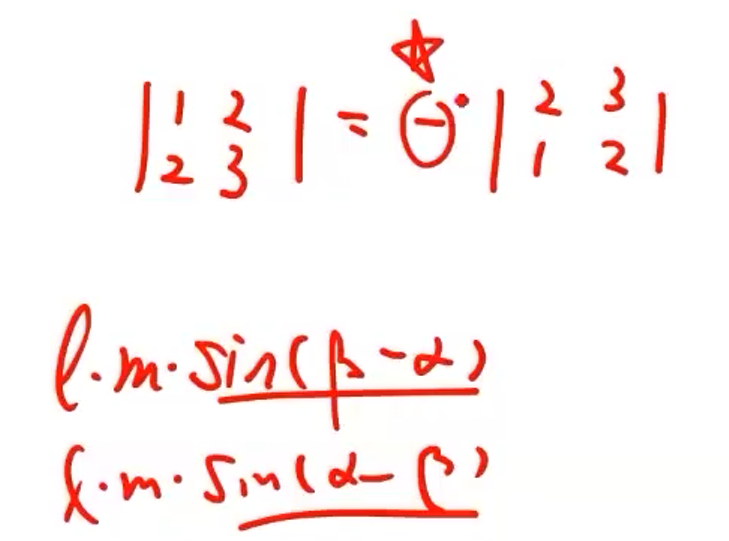 | 1 2 | = ⊖ · | 2 3 |
| 2 3 | | 1 2 |
l·m·sin(β-α)
l·m·sin(α-β)